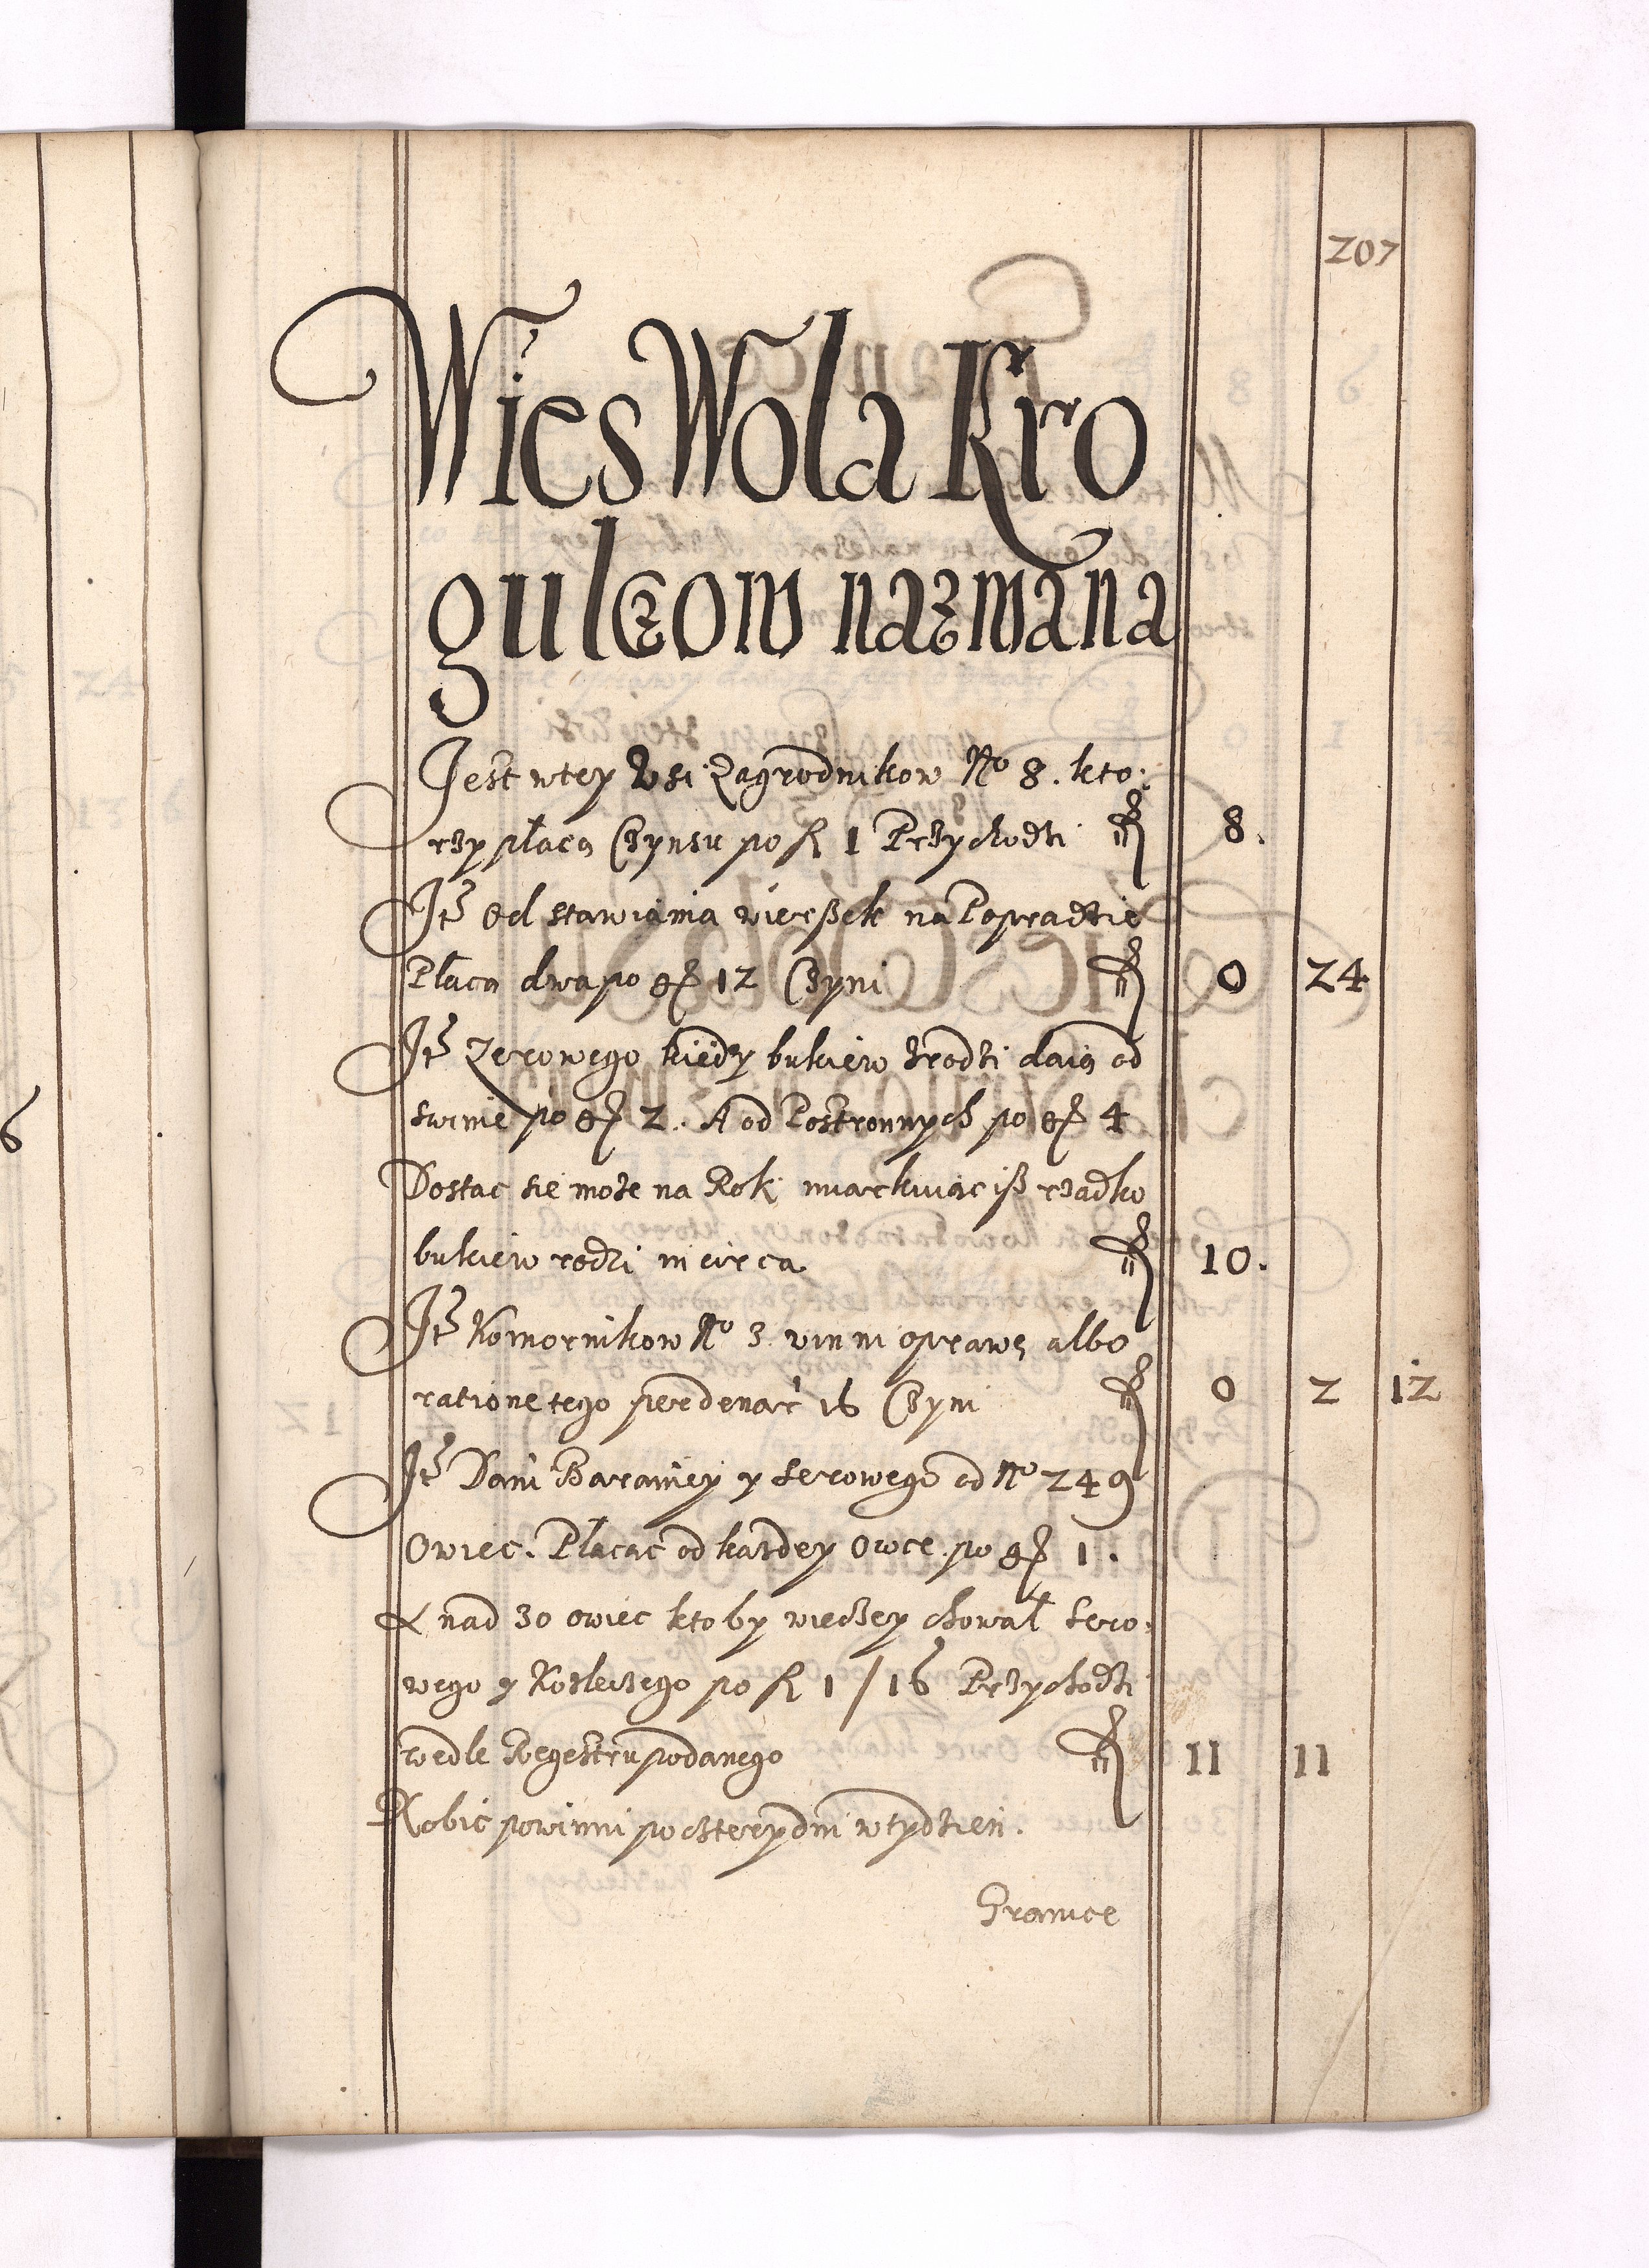 207
Wies Wola Kro
gulczow nazwana
Jest wtey Wsi Zagrodnikow No 8. kto:
rzy płacą Czynsu po fl 1 Przychodzi fl 8.
Itē Od stawiania wierszek na Popradzie
Płacą dwa po gr 12 Czyni fl 0 24
Itē Zerowego kiedy bukiew zrodzi daią od
swinie po gr 2. A od Postronnych po gr 4
Dostac sie może na Rok miarkuiąc iß rzadko
bukiew rodzi in circa fl 10.
Itē Komornikow No 3 vinni oprawę albo
ratione tego per denar 16 Czyni fl 0 2 12
Itē Dani Baraniey y Serowego od No 249
Owiec. Płacąc od każdey Owce po gr 1.
A nad 30 owiec kto by wieczey chował Sero:
wego y Kozleczego po fl 1/16 Przychodzi
wedle Regestru podanego fl 11 11
Robic powinni po cztery dni w tydzien.
Granice
6